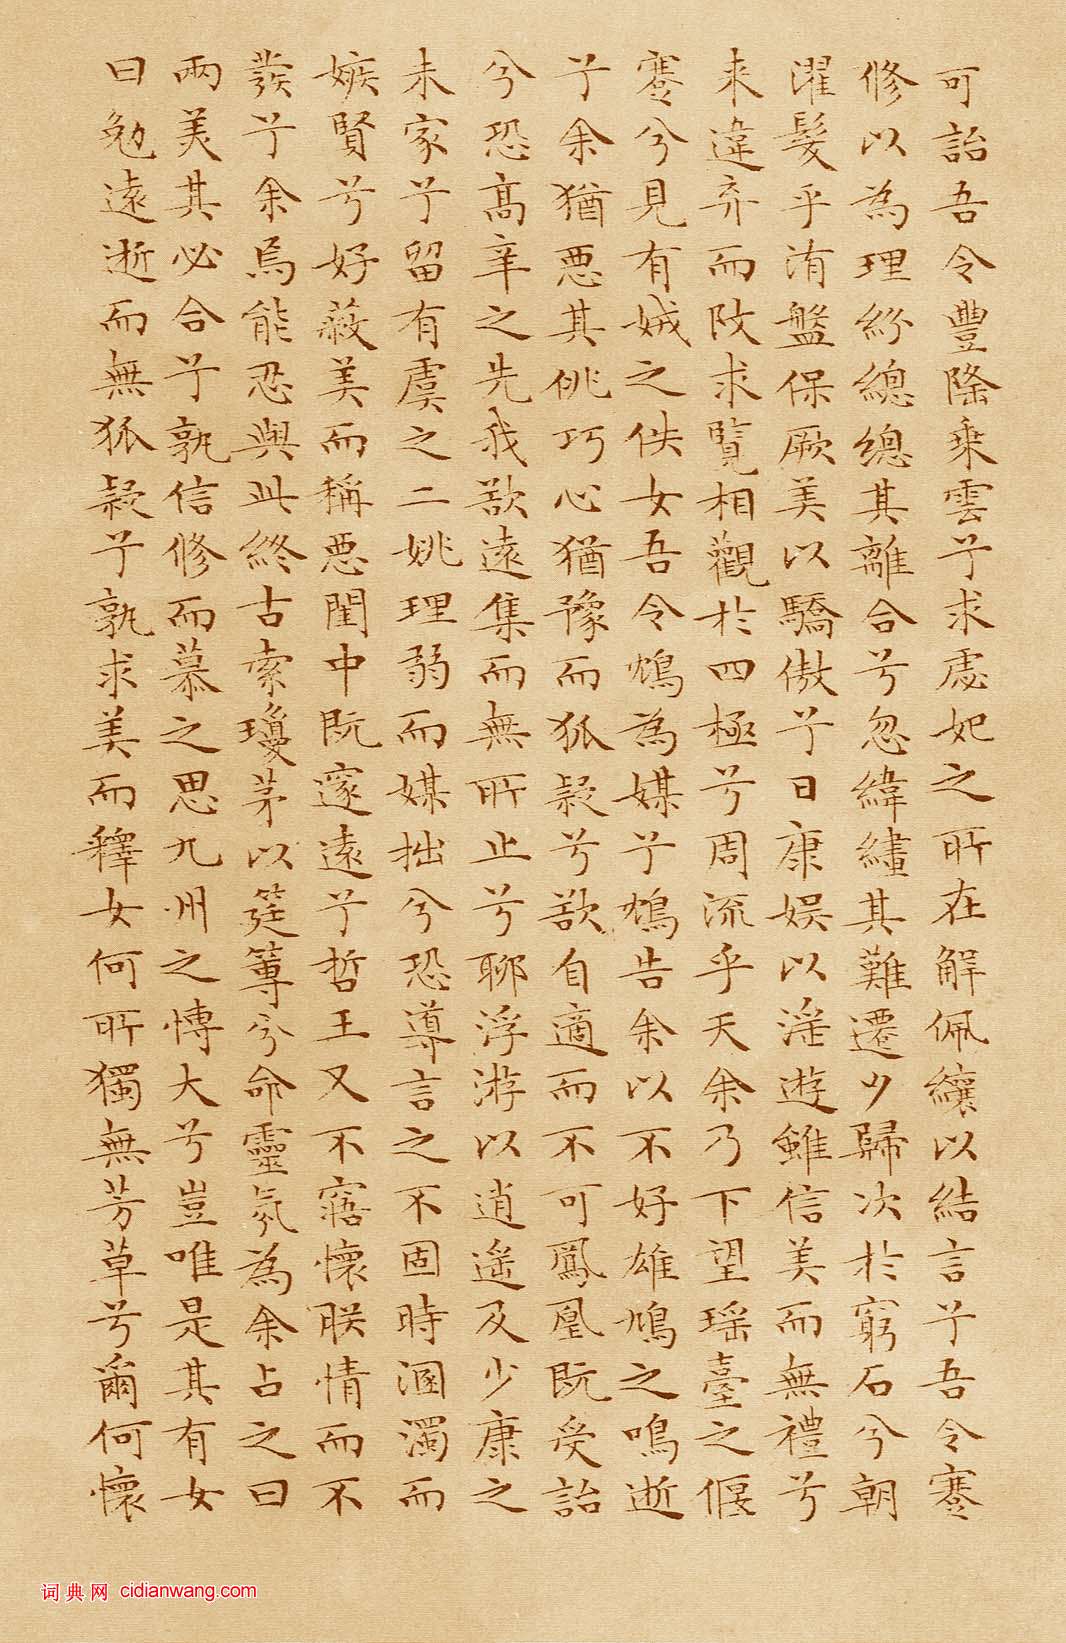 可詒吾令豐隆乘雲兮求虙妃之所在解佩纕以結言兮吾令蹇
修以為理紛總總其離合兮忽緯繣其難遷夕歸次於窮石兮朝
濯髮乎洧盤保厥美以驕傲兮日康娛以淫遊雖信美而無禮兮
来違弃而改求覽相觀於四極兮周流乎天余乃下望瑤臺之偃
蹇兮見有娀之佚女吾令鴆為媒兮鴆告余以不好雄鳩之鳴逝
兮余猶惡其佻巧心猶豫而狐疑兮欲自適而不可鳳凰既受詒
兮恐高辛之先我欲遠集而無所止兮聊浮游以逍遙及少康之
未家兮留有虞之二姚理弱而媒拙兮恐導言之不固時溷濁而
嫉賢兮好蔽美而稱惡閨中既邃遠兮哲王又不寤懷朕情而不
發兮余焉能忍與此終古索瓊茅以筳篿兮命靈氛為余占之曰
兩美其必合兮孰信修而慕之思九州之博大兮豈唯是其有女
曰勉遠逝而無狐疑兮孰求美而釋女何所獨無芳草兮爾何懷
词典网 cidianwang.com